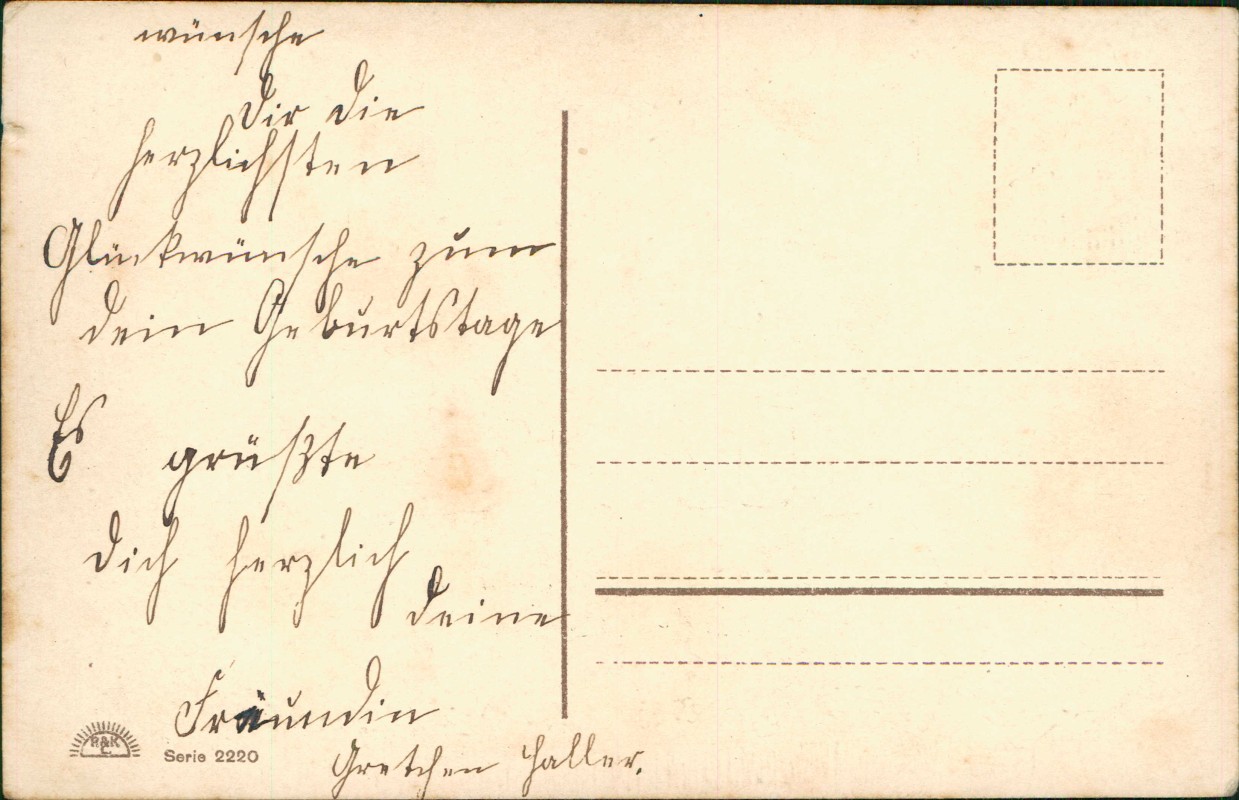 wünsche
Dir die
herzlichsten
Glückwünsche zum
dein Geburtstage
Es grüßte
Dich herzlich
deine
Fräundin
Gretchen Haller.
R&K
L
Serie 2220